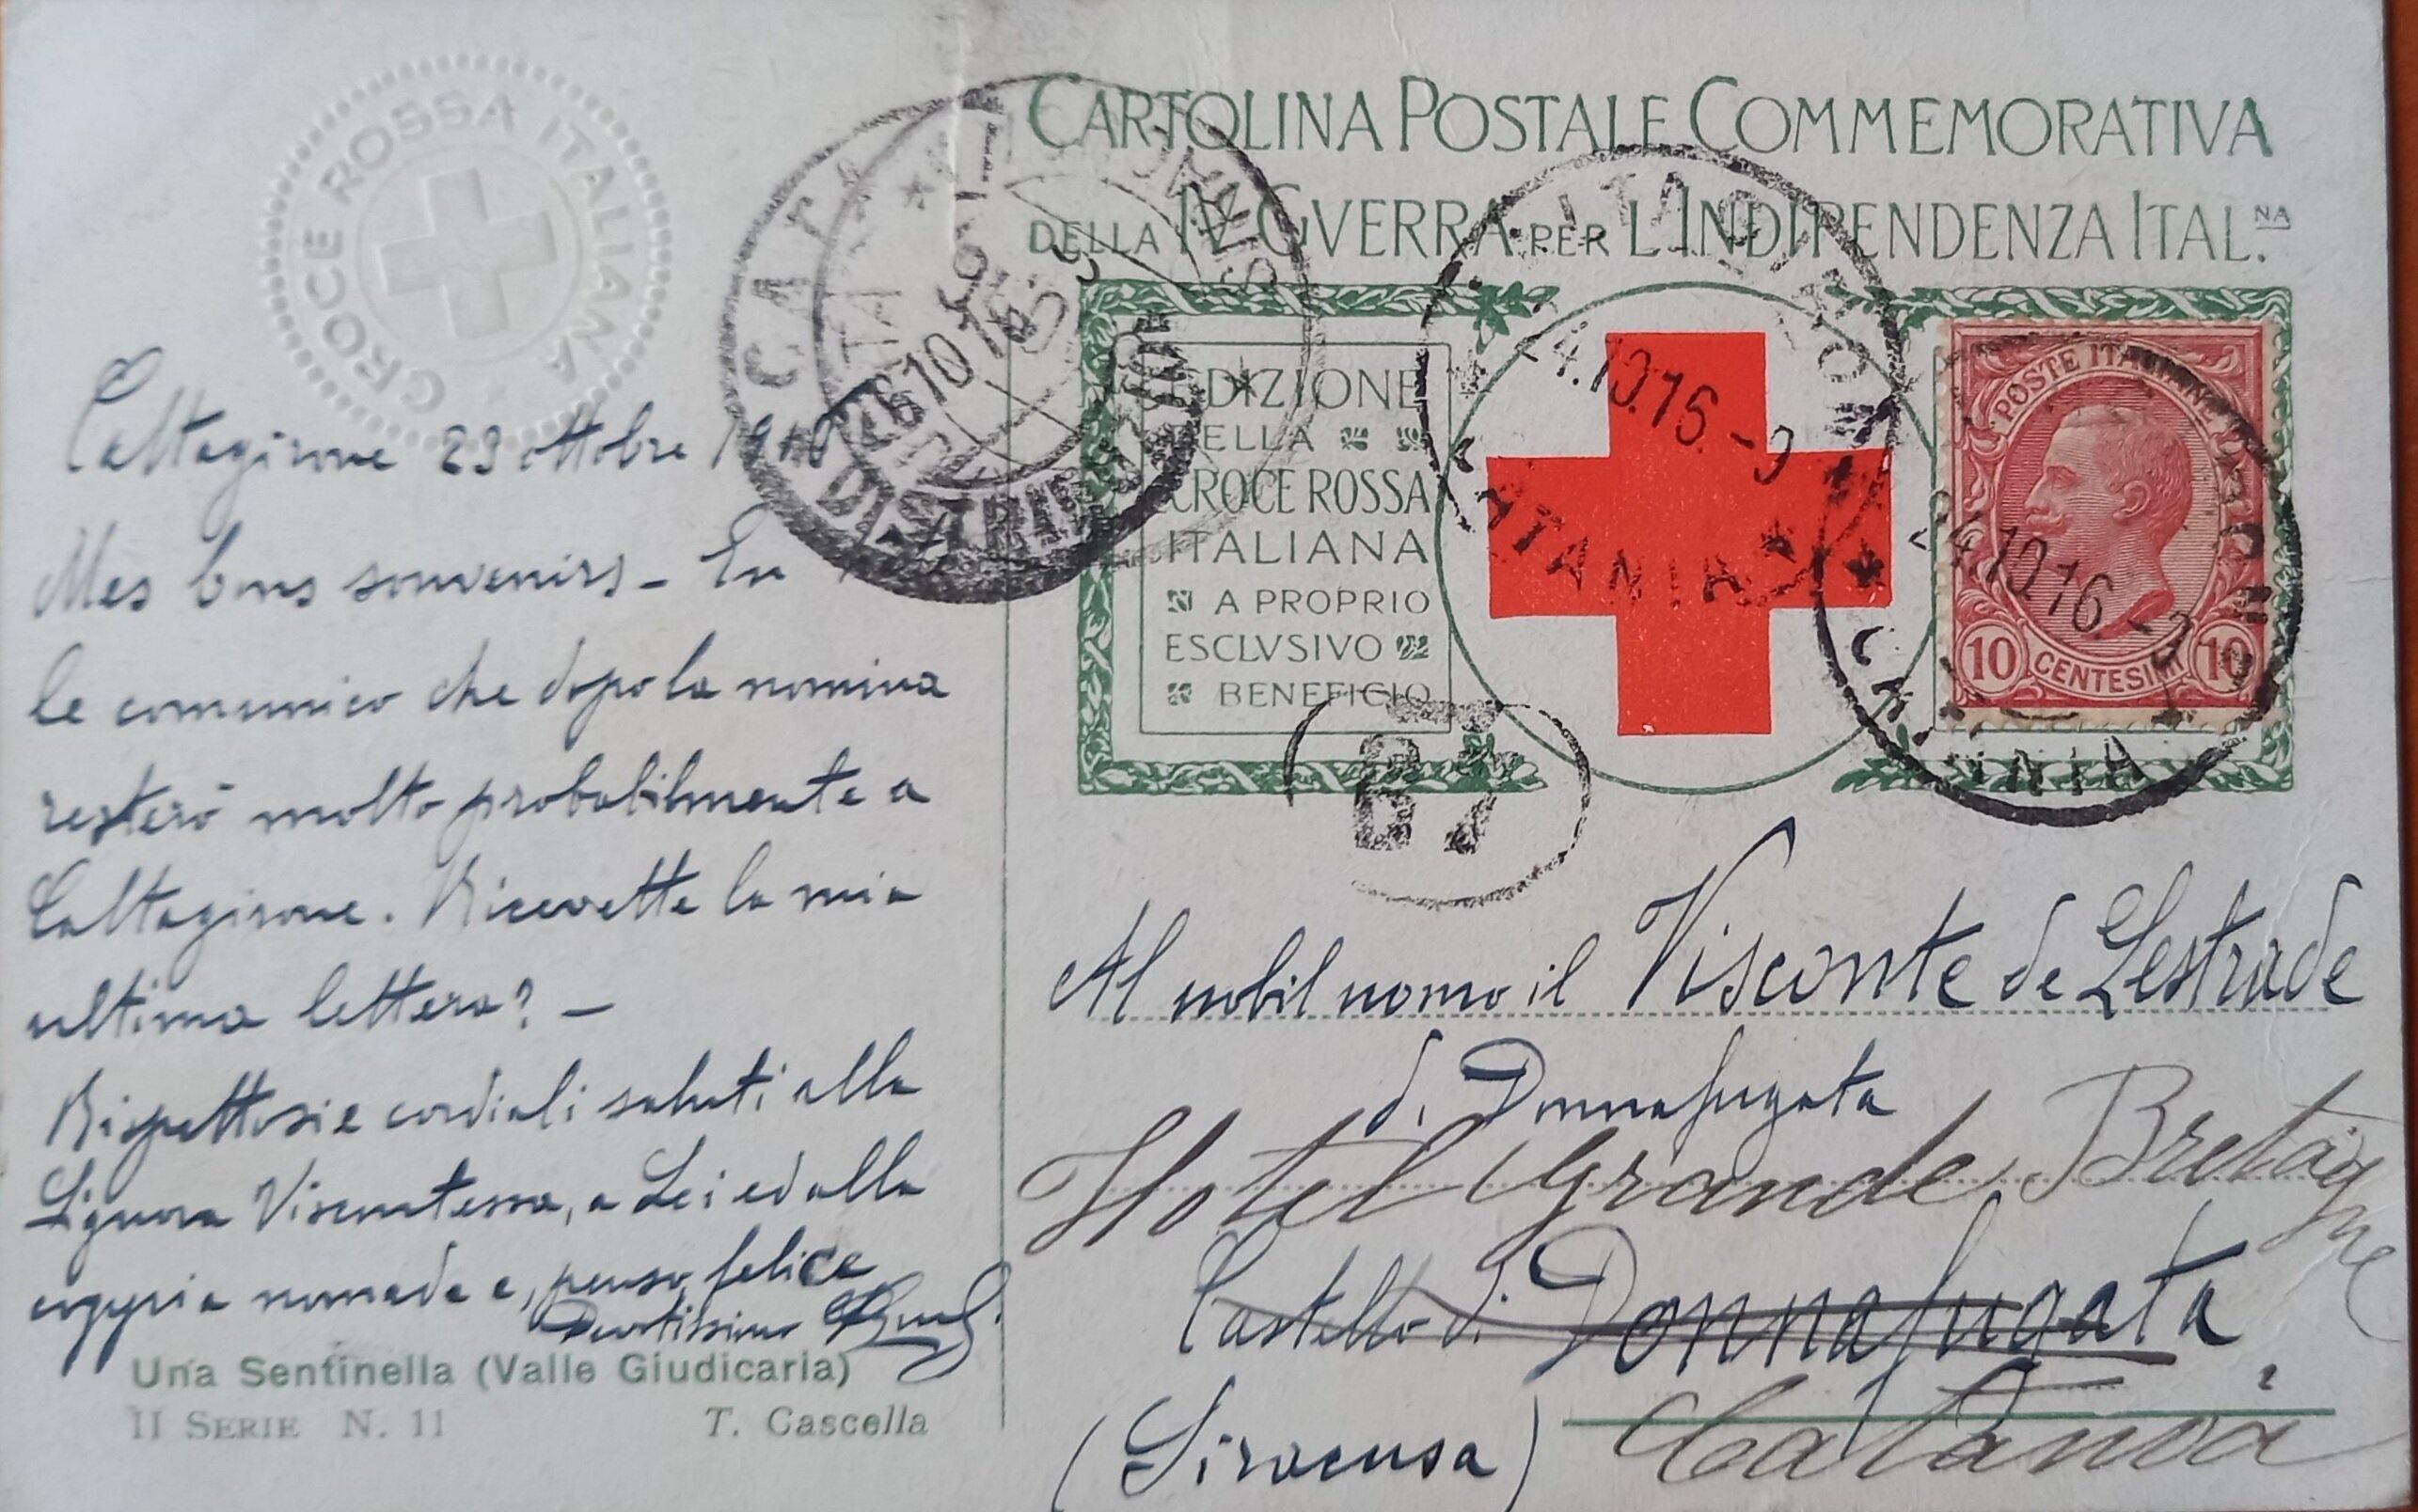 CROCE ROSSA ITALIANA
Caltagirone 23 ottobre 1916
Mes bons souvenirs -
le comunico che dopo la nomina
resterò molto probabilmente a
Caltagirone. Ricevette la mia
ultima lettera? -
Rispettosi e cordiali saluti alla
Signora Viscontessa, a Lei ed alla
coppia nomade e, penso, felice
Devotissimo
Una Sentinella (Valle Giudicaria)
II SERIE N. 11 T. Cascella
CARTOLINA POSTALE COMMEMORATIVA
DELLA IV GVERRA PER L'INDIPENDENZA ITAL.NA
EDIZIONE
DELLA
CROCE ROSSA
ITALIANA
A PROPRIO
ESCLVSIVO
BENEFICIO
26 10 16
24.10.16.-9
CATANIA
POSTE ITALIANE
10 CENTESIMI 10
24.10.16.-9
CATANIA
87
Al nobil uomo il Visconte de Lestrade
di Donnafugata
Hotel Grande Bretagne
Castello di Donnafugata
(Siracusa)
Catania